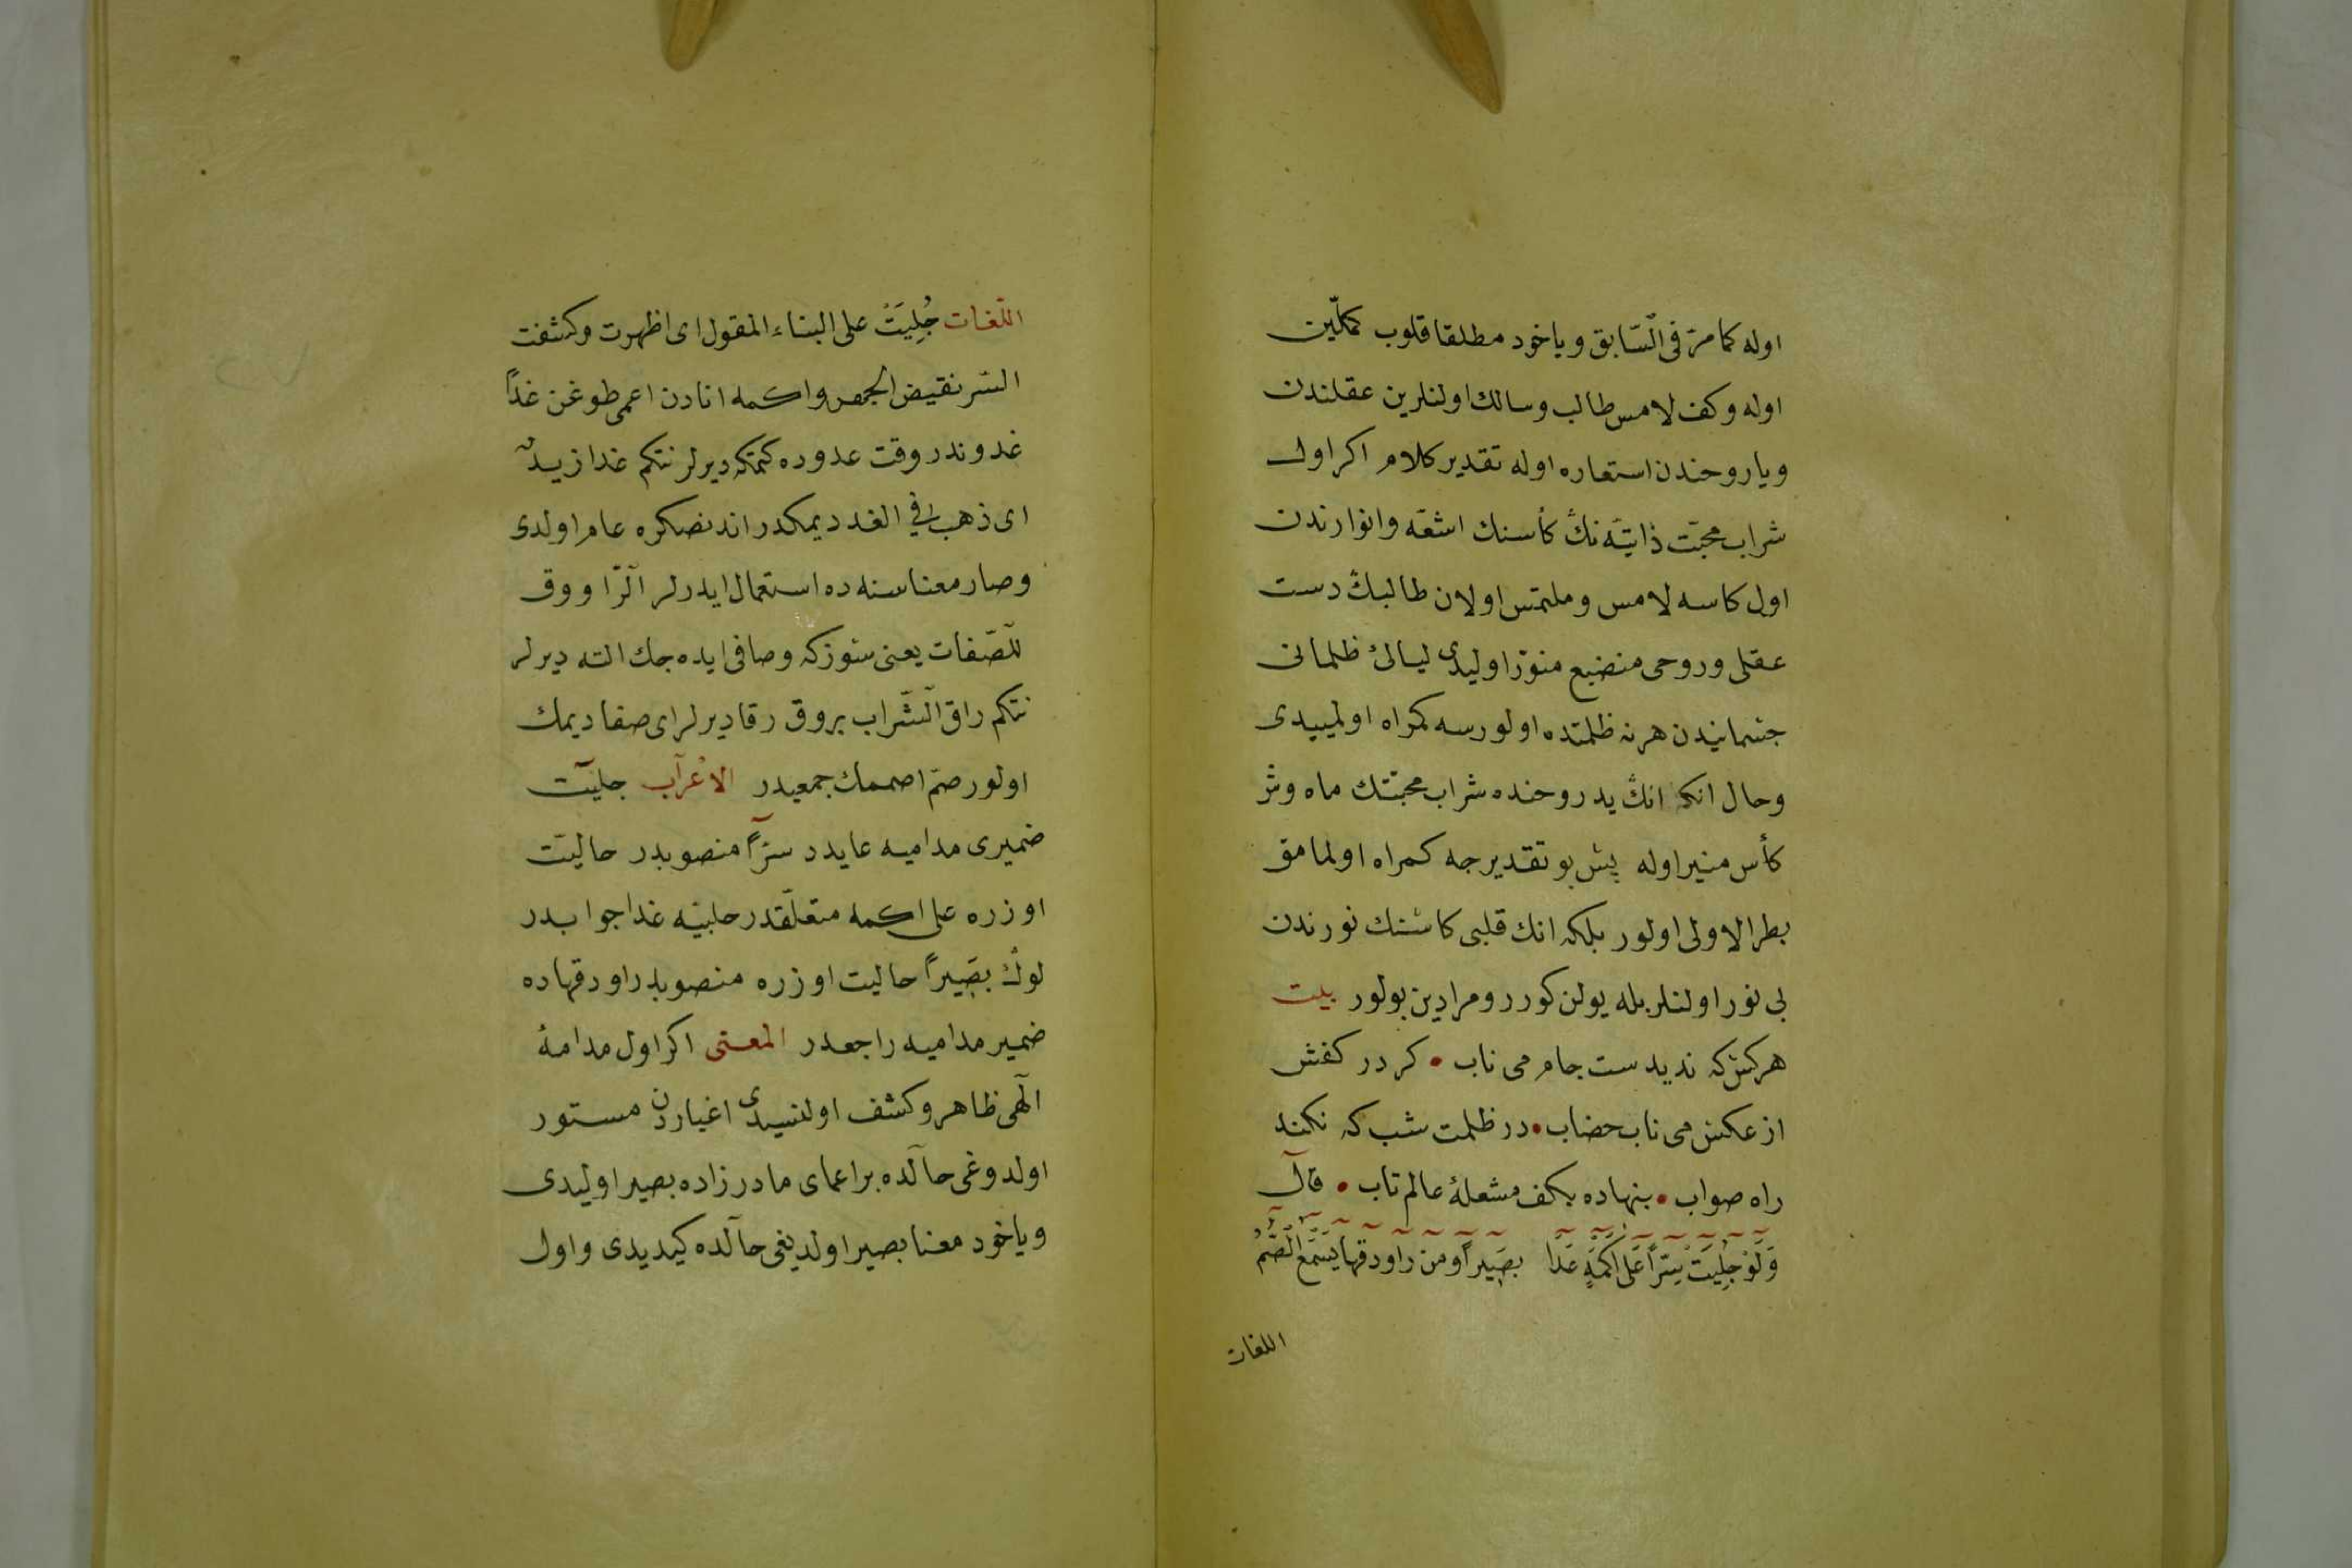 اوله كما مرّ فی السّابق و یاخود مطلقا قلوب كملّین
اوله و كف لامس طالب و سالك اولنلرین عقلندن
و یا روحندن استعاره اوله تقدیر كلام اكر اول
شراب محبّت ذاتیّه نڭ كأسنك اشعّه و انوارندن
اول كاسه لامس و ملتمس اولان طالبڭ دست
عقلی و روحی منضبع منوّر اولیدی لیالئ ظلمانی
جسمانیدن هرنه ظلمتده اولورسه كمراه اولمییدی
و حال انكه انڭ ید روحنده شراب محبّتك ماه وش
كأس منیر اوله پس بو تقدیرجه كمراه اولمامق
بطر الاولی اولور بلكه انك قلبی كاسنك نورندن
بی نور اولنلر بله یولن كورر و مرادین بولور بیت
هركس كه ندیدست جام می ناب • كر در كفش
از عكس می ناب خضاب • در ظلمت شب كه نكند
راه صواب • بنهاده بكف مشعلهٔ عالم تاب • قال
وَلَوْ جُلِیَتْ سِرّاً عَلَی اكْمَهٍ غَدَا بَصِیراً و من راووقها یَسْمَعُ الصُّمُّ
اللغات
اللّغات جُلِیَتْ علی البناء المقول ای اظهرت و كشفت
السّر نقیض الجهر و اكمه انادن اعمی طوغن غداً
غدوندر وقت غدوده كتمكه دیرلر نتكم غدا زیدٌ
ای ذهب فی الغد دیمكدر اندنصكره عام اولدی
و صار معناسنه ده استعمال ایدرلر الرّاووق
للصّفات یعنی سوزكه و صافی ایده جك الته دیرلر
نتكم راق الشّراب یروق رقا دیرلر ای صفا دیمك
اولور صمّ اصممك جمعیدر الاعراب جلیت
ضمیری مدامیه عایدد سرّاً منصوبدر حالیّت
اوزره علی اكمه متعلّقدر جلیته غدا جوابدر
لوڭ بصیراً حالیت اوزره منصوبدر راووقهاده
ضمیر مدامیه راجعدر المعنی اكر اول مدامهٔ
الهی ظاهر و كشف اولنسیدی اغیاردن مستور
اولدوغی حالده بر اعمای مادرزاده بصیر اولیدی
و یاخود معنا بصیر اولدیغی حالده كیدیدی و اول